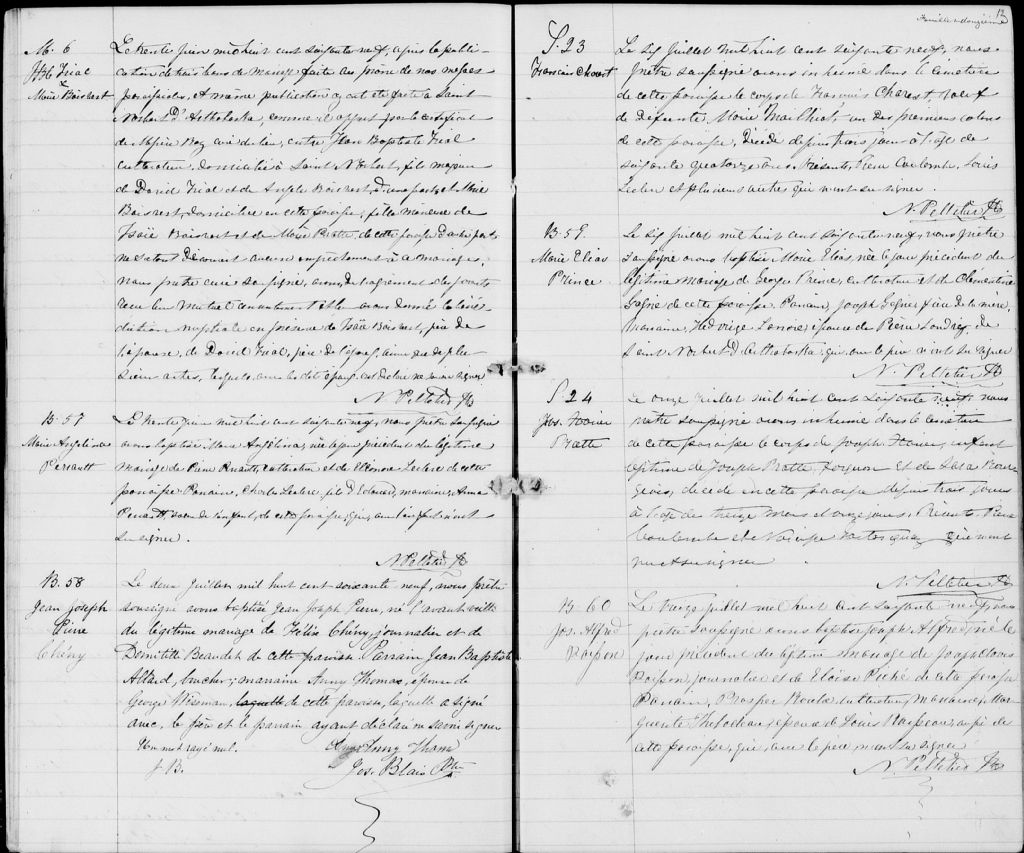 M. 6
J. Bte Trial
&
Marie Boisvert
Le trente juin mil huit cent soixante neuf, après la publi-
cation de trois bans de mariage faite au prône de nos messes
paroissiales, et même publication ayant été faite à Saint
Norbert d'Arthabaska, comme il appert par le certificat
de Messire Roy curé du lieu, entre Jean Baptiste Trial
cultivateur, domicilié à Saint Norbert, fils majeur
de David Trial et de Angèle Boisvert, d'une part; et Marie
Boisvert, domiciliée en cette paroisse, fille mineure de
Isaïe Boisvert et de Marie Pratte, de cette paroisse d'autre part
ne s'étant découvert aucun empêchement à ce mariage,
nous prêtre curé soussigné, avons, de l'agrément des parents
reçu leur mutuel consentement et leur avons donné la béné-
diction nuptiale en présence de Isaïe Boisvert, père de
l'épouse, de David Trial, père de l'époux, ainsi que de plu-
sieurs autres, lesquels, avec les dits époux, ont déclaré ne savoir signer
N. Pelletier Ptre
B. 57
Marie Angélina
Perrault
Le trente juin mil huit cent soixante neuf, nous prêtre soussigné
avons baptisé Marie Angélina, née le jour précédent du légitime
mariage de Pierre Perrault, cultivateur et de Eléonore Leclerc de cette
paroisse. Parrain, Charles Leclerc, fils d'Edouard, marraine, Anna
Perrault, soeur de l'enfant, de cette paroisse, qui, avec le père n'ont
su signer.
N. Pelletier Ptre
B. 58
Jean Joseph
Pierre
Chény
Le deux Juillet mil huit cent soixante neuf, nous prêtre
soussigné avons baptisé Jean Joseph Pierre, né l'avant veille
du légitime mariage de Félix Chény, journalier et de
Domitilde Beaudet de cette paroisse. Parrain Jean Baptiste
Allard, bucher; marraine Anny Thomas, épouse de
George Wiseman, laquelle de cette paroisse, laquelle a signé
avec, le père et le parrain ayant déclaré ne savoir signer
Un mot rayé nul.
J. B.
Anny Thom
Jos. Blais Ptre
Feuillet douzième
12
S. 23
François Charest
Le six Juillet mil huit cent soixante neuf, nous
prêtre soussigné avons inhumé dans le cimetière
de cette paroisse le corps de François Charest, veuf
de Défunte Marie Mailhot, un des premiers colons
de cette paroisse, décédé depuis trois jours à l'âge de
soixante quatorze ans. Présents, Pierre Coulombe, Louis
et plusieurs autres qui n'ont su signer.
N. Pelletier Ptre
B. 59.
Marie Elias
Prince
Le six juillet mil huit cent soixante neuf, nous prêtre
soussigné avons baptisé Marie Elias née le jour précédent du
légitime mariage de George Prince, cultivateur et de Clémentine
Gagné de cette paroisse. Parrain, Joseph Gagné père de la mère,
marraine, Hedwige Lenoir, épouse de Pierre Landry, de
Saint Norbert d'Arthabaska, qui, avec le père n'ont su signer
N. Pelletier Ptre
S. 24
Jos. Xavier
Pratte
Le onze juillet mil huit cent soixante neuf, nous
prêtre soussigné avons inhumé dans le cimetière
de cette paroisse le corps de Joseph Xavier, enfant
légitime de Joseph Pratte, forgeron et de Sara Bour-
geois, décédé en cette paroisse depuis trois jours
à l'âge de treize mois et onze jours. Présents Pierre
Coulombe et qui n'ont
pu signer
N. Pelletier Ptre
B. 60
Jos. Alfred
Poisson
Le treize juillet mil huit cent soixante neuf, nous
prêtre soussigné avons baptisé Joseph Alfred, né le
jour précédent du légitime mariage de Joseph Louis
Poisson, journalier et de Eloïse Piché de cette paroisse
Parrain, Prosper Houle, cultivateur, marraine, Mar-
guerite épouse de Louis aussi de
cette paroisse, qui, avec le père n'ont su signer
N. Pelletier Ptre